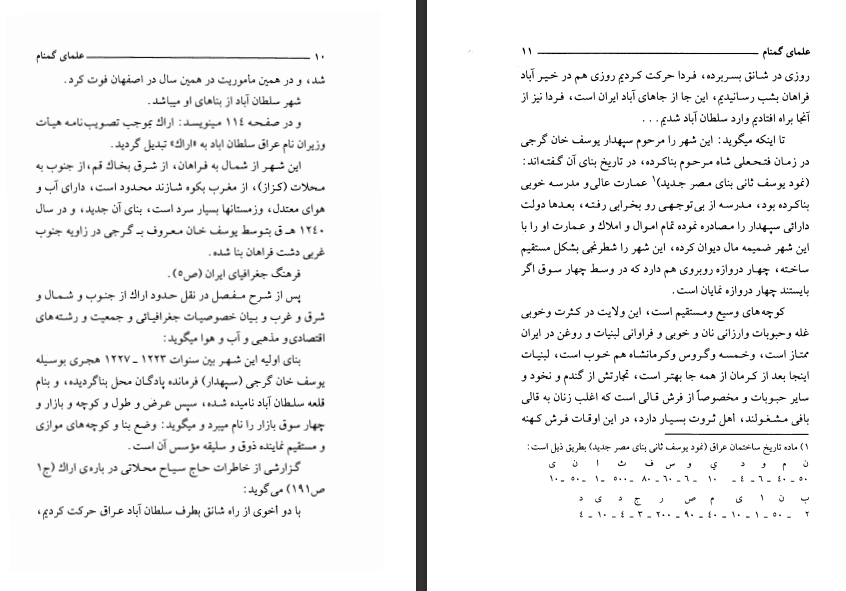 ۱۰ علمای گمنام
شد، و در همین ماموریت در همین سال در اصفهان فوت کرد.
شهر سلطان آباد از بناهای او میباشد.
و در صفحه ۱۱۴ مینویسد: اراك بموجب تصویب‌نامه هیات
وزیران نام عراق سلطان اباد به «اراك» تبدیل گردید.
این شهر از شمال به فراهان، از شرق بخاك قم، از جنوب به
محلات (کزاز)، از مغرب بکوه شازند محدود است، دارای آب و
هوای معتدل، وزمستانها بسیار سرد است، بنای آن جدید، و در سال
۱۲۴۰ هـ ق بتوسط یوسف خان معروف بـ گرجی در زاویه جنوب
غربی دشت فراهان بنا شده.
فرهنگ جغرافیای ایران (ص۵).
پس از شرح مفصل در نقل حدود اراك از جنوب و شمال و
شرق و غرب و بیان خصوصیات جغرافیائی و جمعیت و رشته‌های
اقتصادی و مذهبی و آب و هوا میگوید:
بنای اولیه این شهر بین سنوات ۱۲۲۳ ـ ۱۲۲۷ هجری بوسیله
یوسف خان گرجی (سپهدار) فرمانده پادگان محل بناگردیده، و بنام
قلعه سلطان آباد نامیده شده، سپس عرض و طول و کوچه و بازار و
چهار سوق بازار را نام میبرد و میگوید: وضع بنا و کوچه‌های موازی
و مستقیم نماینده ذوق و سلیقه مؤسس آن است.
گزارشی از خاطرات حاج سیاح محلاتی در باره‌ی اراك (ج۱
ص۱۹۱) می‌گوید:
با دو أخوی از راه شانق بطرف سلطان آباد عراق حرکت کردیم،
علمای گمنام ۱۱
روزی در شانق بسربرده، فردا حرکت کردیم روزی هم در خیر آباد
فراهان بشب رسانیدیم، این جا از جاهای آباد ایران است، فردا نیز از
آنجا براه افتادیم وارد سلطان آباد شدیم...
تا اینکه میگوید: این شهر را مرحوم سپهدار یوسف خان گرجی
در زمان فتحعلی شاه مرحوم بناکرده، در تاریخ بنای آن گفته‌اند:
(نمود یوسف ثانی بنای مصر جدید)۱ عمارت عالی و مدرسه خوبی
بناکرده بود، مدرسه از بی‌توجهی رو بخرابی رفته، بعدها دولت
دارائی سپهدار را مصادره نموده تمام اموال و املاك و عمارت او را با
این شهر ضمیمه مال دیوان کرده، این شهر را شطرنجی بشکل مستقیم
ساخته، چهار دروازه روبروی هم دارد که در وسط چهار سوق اگر
بایستند چهار دروازه نمایان است.
کوچه‌های وسیع ومستقیم است، این ولایت در کثرت وخوبی
غله وحبوبات وارزانی نان و خوبی و فراوانی لبنیات و روغن در ایران
ممتاز است، وخمسه وگروس وکرمانشاه هم خوب است، لبنیات
اینجا بعد از کرمان از همه جا بهتر است، تجارتش از گندم و نخود و
سایر حبوبات و مخصوصاً از فرش قالی است که اغلب زنان به قالی
بافی مشغولند، أهل ثروت بسیار دارد، در این اوقات فرش کهنه
۱) ماده تاریخ ساختمان عراق (نمود یوسف ثانی بنای مصر جدید) بطریق ذیل است:
ن م و د ي و س ف ث ا ن ی
۵۰ ـ ۴۰ ـ ۶ ـ ۴ ـ ۱۰ ـ ۶ ـ ۶۰ ـ ۸۰ ـ ۵۰۰ ـ ۱ ـ ۵۰ ـ ۱۰
ب ن ا ی م ص ر ج د ی د
۲ ـ ۵۰ ـ ۱ ـ ۱۰ ـ ۴۰ ـ ۹۰ ـ ۲۰۰ ـ ۳ ـ ۴ ـ ۱۰ ـ ۴